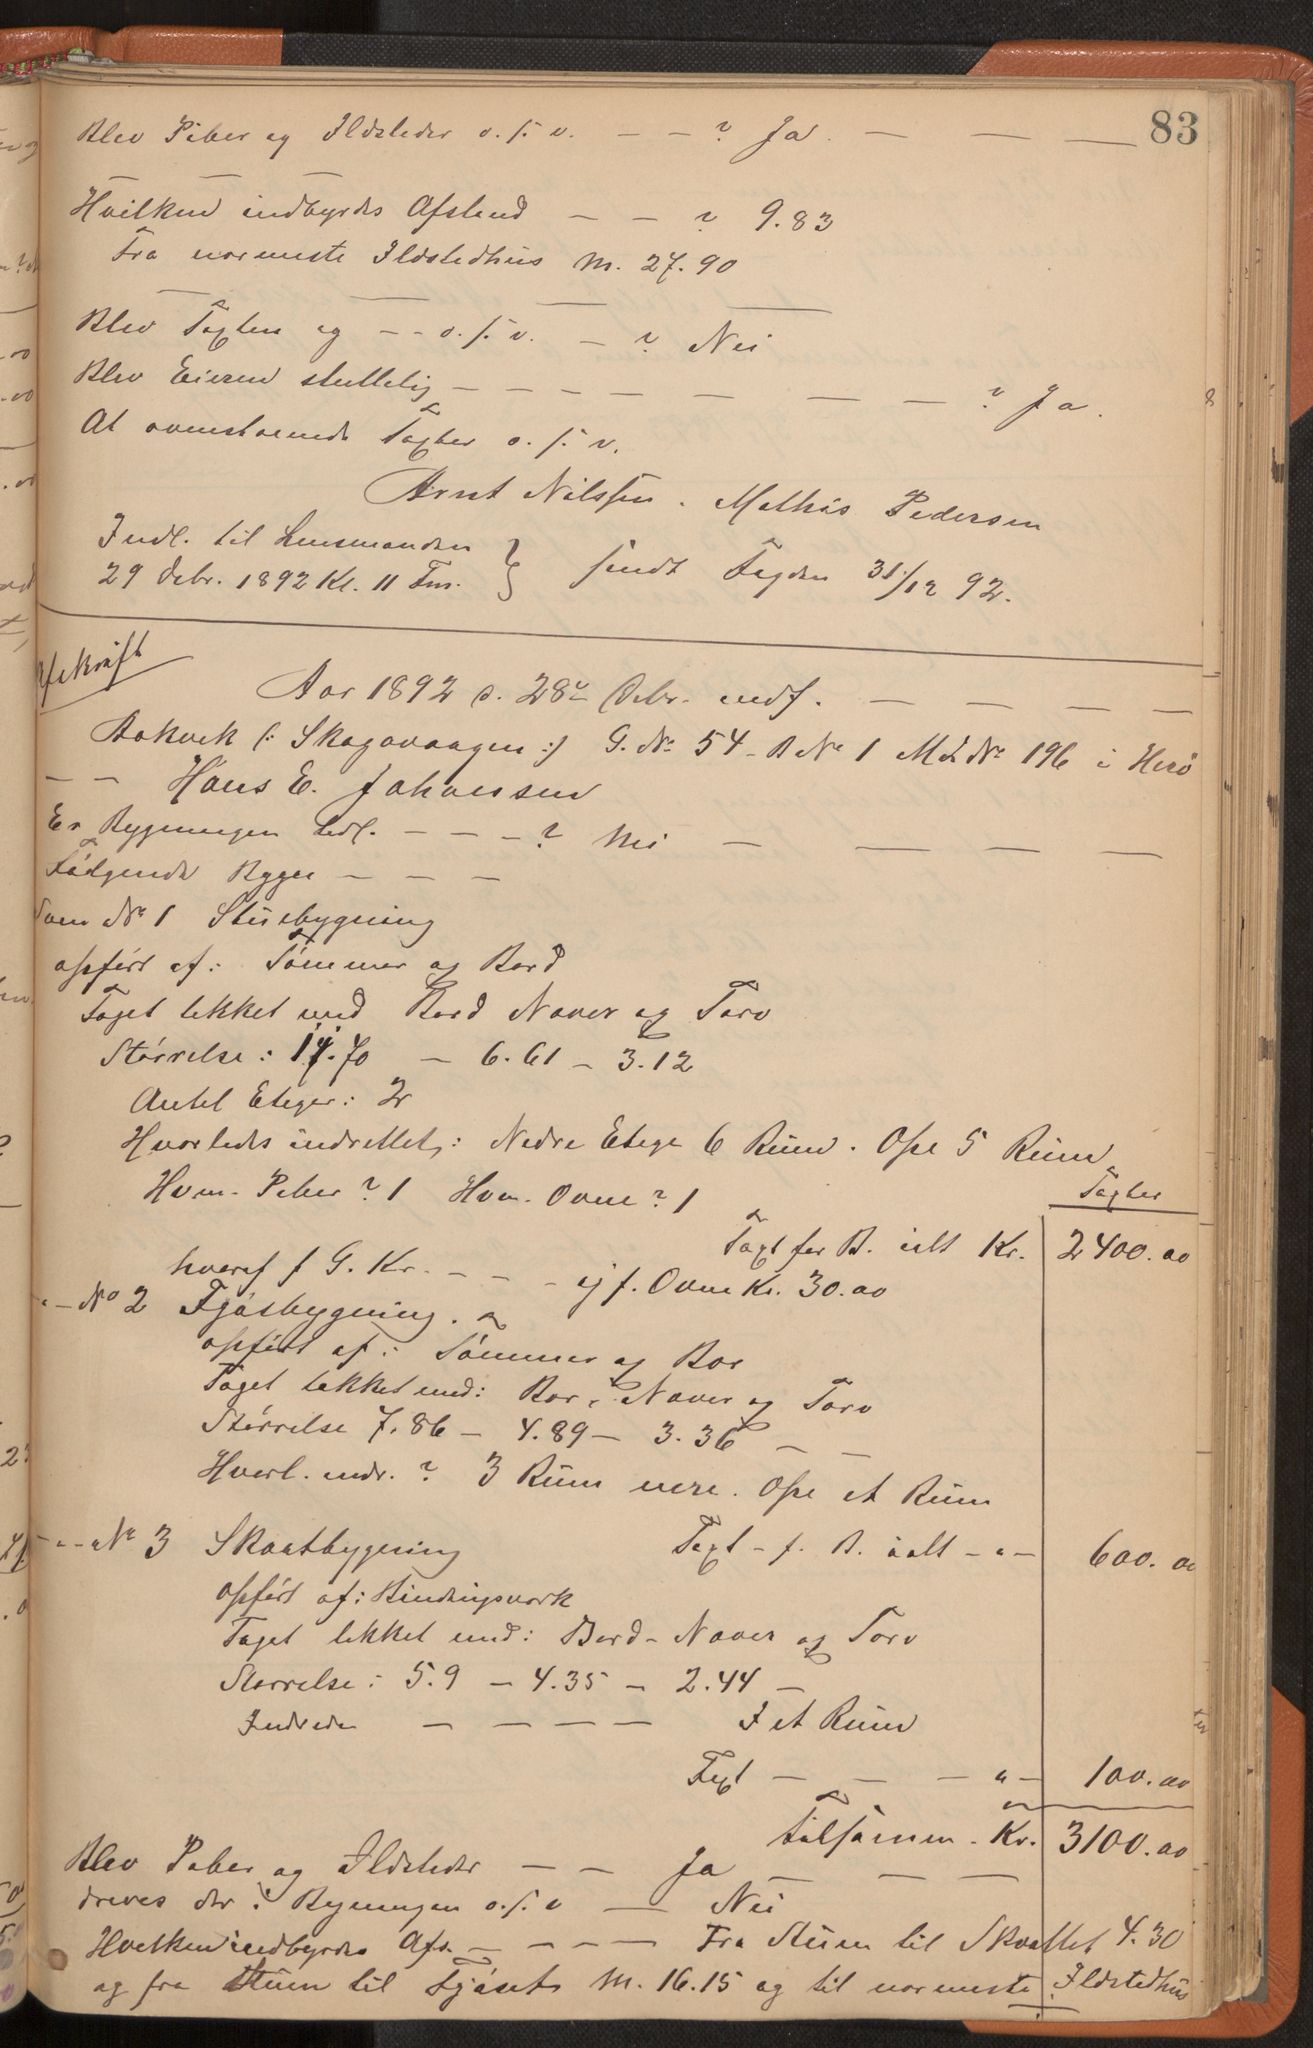 83
Blev Piber og Ildsteder o. s. v. — — ? Ja. — — —
Hvilken indbyrdes Afstand — — ? 9.83
Fra nærmeste Ildstedhus M. 27.90
Blev Taxten og — — o. s. v. — ? Nei
Blev Eieren skellelig — — — — — — — ? Ja.
At ovenstaaende Taxter o. s. v.
Arnt Nilssen. Mathis Pedersen
Indl. til Lensmanden
29 Debr. 1892 Kl. 11 Fm. } sendt Fogden 31/12 92.
Afskrift
Aar 1892 d. 28de Debr. endf. — — — —
Aakvik (: Skagavaagen :) G. No 54 B No 1 M.L. No 196 i Herö
— — Hans E. Johansen
Er Bygningen bedl. — — — ? Nei — — — —
Følgende Bygn — — —
Som No 1 Stuebygning
opført af: Tømmer og Bord
Taget tekket med Bord Never og Torv
Størrelse: 14.70 — 6.61 — 3.12
Antal Etager: 2
Hvorledes indrettet,: Nedre Etage 6 Rum. Ope 5 Rum
Hvm. Piber? 1 Hvm. Ovne? 1
Taxter
Taxt for B. ialt Kr. 2400.00
hveraf f G. Kr. — — — og f. Ovne Kr. 30.00
" — No 2 Fjøsbygning.
opført af: Tømmer og Bor
Taget tekket med: Bor, Never og Torv
Størrelse 7.86 — 4.89 — 3.36 — —
Hvorl. indr. ? 3 Rum nere. Ope et Rum
Taxt — f. B. ialt — " — 600.00
— " — " No 3 Skaatbygning
opført af: Bindingsverk
Taget tekket med: Bord — Never og Torv
Størrelse: 5.9 — 4.35 — 2.44 —
Indreden — — — — I et Rum
Taxt — — — " — 100.00
tilsamen. Kr. 3100.00
Blev Piber og Ildsteder — — Ja — — —
drives der i Bygningen o. s. v — Nei
Hvilken indbyrdes Afs. — — — — Fra Stuen til Skaattet 4.30
og fra Stuen til Fjøset M. 16.15 og til nærmeste Ildstedhus